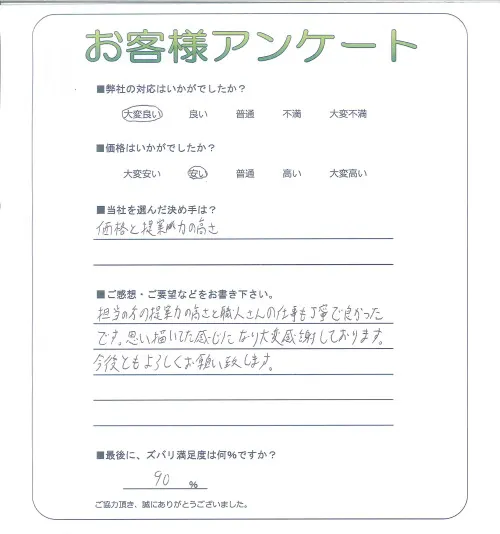 お客様アンケート
■弊社の対応はいかがでしたか？
大変良い 良い 普通 不満 大変不満
■価格はいかがでしたか？
大変安い 安い 普通 高い 大変高い
■当社を選んだ決め手は？
価格と提案力の高さ
■ご感想・ご要望などをお書き下さい。
担当の方の提案力の高さと職人さんの仕事も丁寧で良かった
です。思い描いてた感じになり大変感謝しております。
今後ともよろしくお願い致します。
■最後に、ズバリ満足度は何%ですか？
90 %
ご協力頂き、誠にありがとうございました。